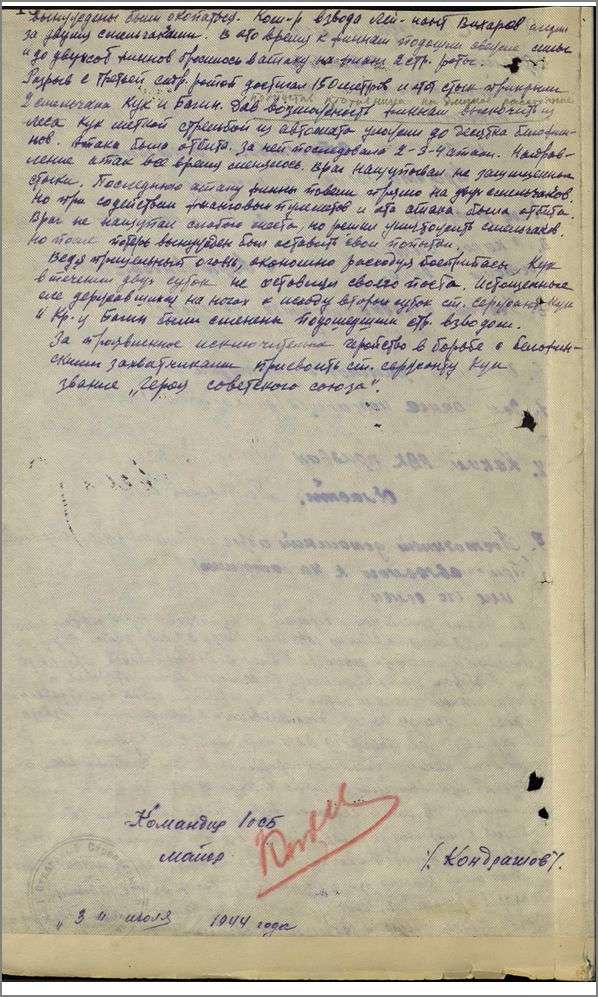 вынуждены были окопаться. Ком-р взвода лей-нант Вихарев
за двумя смельчаками. В это время к финнам подошли свежие силы
и до двухсот финнов бросилось в атаку на фланг 2 стр. роты.
Разрыв с третьей стр. ротой достигал 150 метров и этот стык прикрыли
2 смельчака Кук и Багин. Дав возможность финнам выскочить из
леса Кук меткой стрельбой из автомата уложил до десятка белофин-
нов. Атака была отбита. За ней последовала 2-3-4 атаки. Направ-
ление атак все время менялось. Враг нащупывал не защищенные
стыки. Последнюю атаку финны повели прямо на двух смельчаков.
Но при содействии фланговых пулеметов и эта атака была отбита.
Враг не нащупал слабого места, но решил уничтожить смельчаков.
но после потерь вынужден был оставить свои попытки.
Ведя прицельный огонь, экономно расходуя боеприпасы, Кук
в течении двух суток не оставил своего поста. Истощенные
еле державшиеся на ногах к исходу вторых суток ст. сержант Кук
и кр-ц Багин были сменены подошедшим стр. взводом.
За проявленное исключительное геройство в борьбе с белофин-
скими захватчиками присвоить ст. сержанту Кук
звание „Героя советского союза".
Командир 1 осб
майор /. Кондрашов /.
„ 3 " июля 1944 года